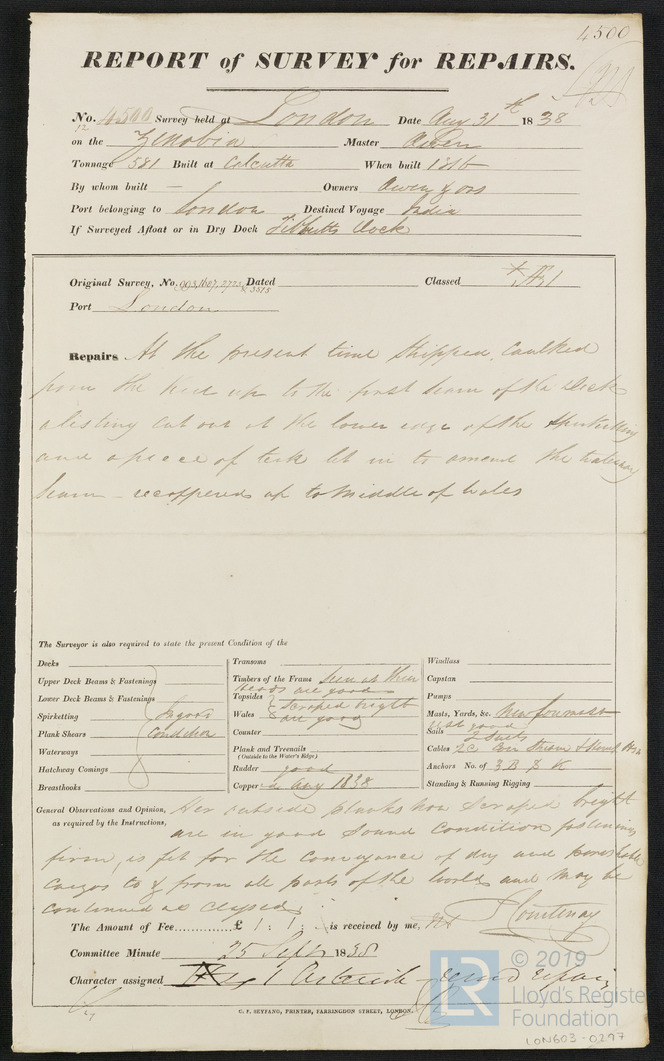 4500
REPORT of SURVEY for REPAIRS.
No. 4500 Survey held at London Date Aug 31th 1838
12
on the Zenobia Master Owen
Tonnage 581 Built at Calcutta When built 1816
By whom built — Owners Owen & ors
Port belonging to London Destined Voyage India
If Surveyed Afloat or in Dry Dock Dock
Original Survey, No. 903, 1687, 2722 Dated Classed A1
& 3515
Port London
Repairs At the present time Stripped, Caulked
from the keel up to the first seam of the Deck
a listing cut out at the lower edge of the Spirketting
and a piece of teak let in to amend the waterway
seam – recoppered up to middle of Wales
The Surveyor is also required to state the present Condition of the
Decks
Upper Deck Beams & Fastenings
Lower Deck Beams & Fastenings
Spirketting In good
Plank Shears Condition
Waterways
Hatchway Comings
Breasthooks
Transoms
Timbers of the Frame Seen at their
heads are good
Topsides Scraped bright
Wales are good
Counter
Plank and Treenails
(Outside to the Water's Edge)
Rudder good
Copper'd Aug 1838
Windlass
Capstan
Pumps
Masts, Yards, &c. New foremast
rest good
Sails 2 Suits
Cables 2C
Anchors No. of 3 B & K
Standing & Running Rigging
General Observations and Opinion, Her outside planks now Scraped bright
as required by the Instructions, are in good Sound Condition fastening
firm, is fit for the conveyance of dry and perishable
cargos to & from all parts of the world and may be
continued as classed
The Amount of Fee............ £ 1 : 1 : – is received by me, Courtenay
Committee Minute 25 Sept 1838
Character assigned
C. F. SEYFANG, PRINTER, FARRINGDON STREET, LONDON.
LR
© 2019
Lloyd's Register
Foundation
LON603-0297